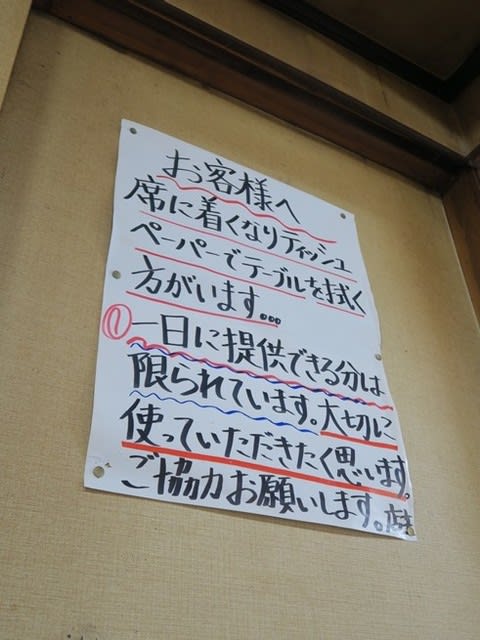 お客様へ
席に着くなりティッシュ
ペーパーでテーブルを拭く
方がいます...
①一日に提供できる分は
限られています。大切に
使っていただきたく思います。
ご協力お願いします。店主